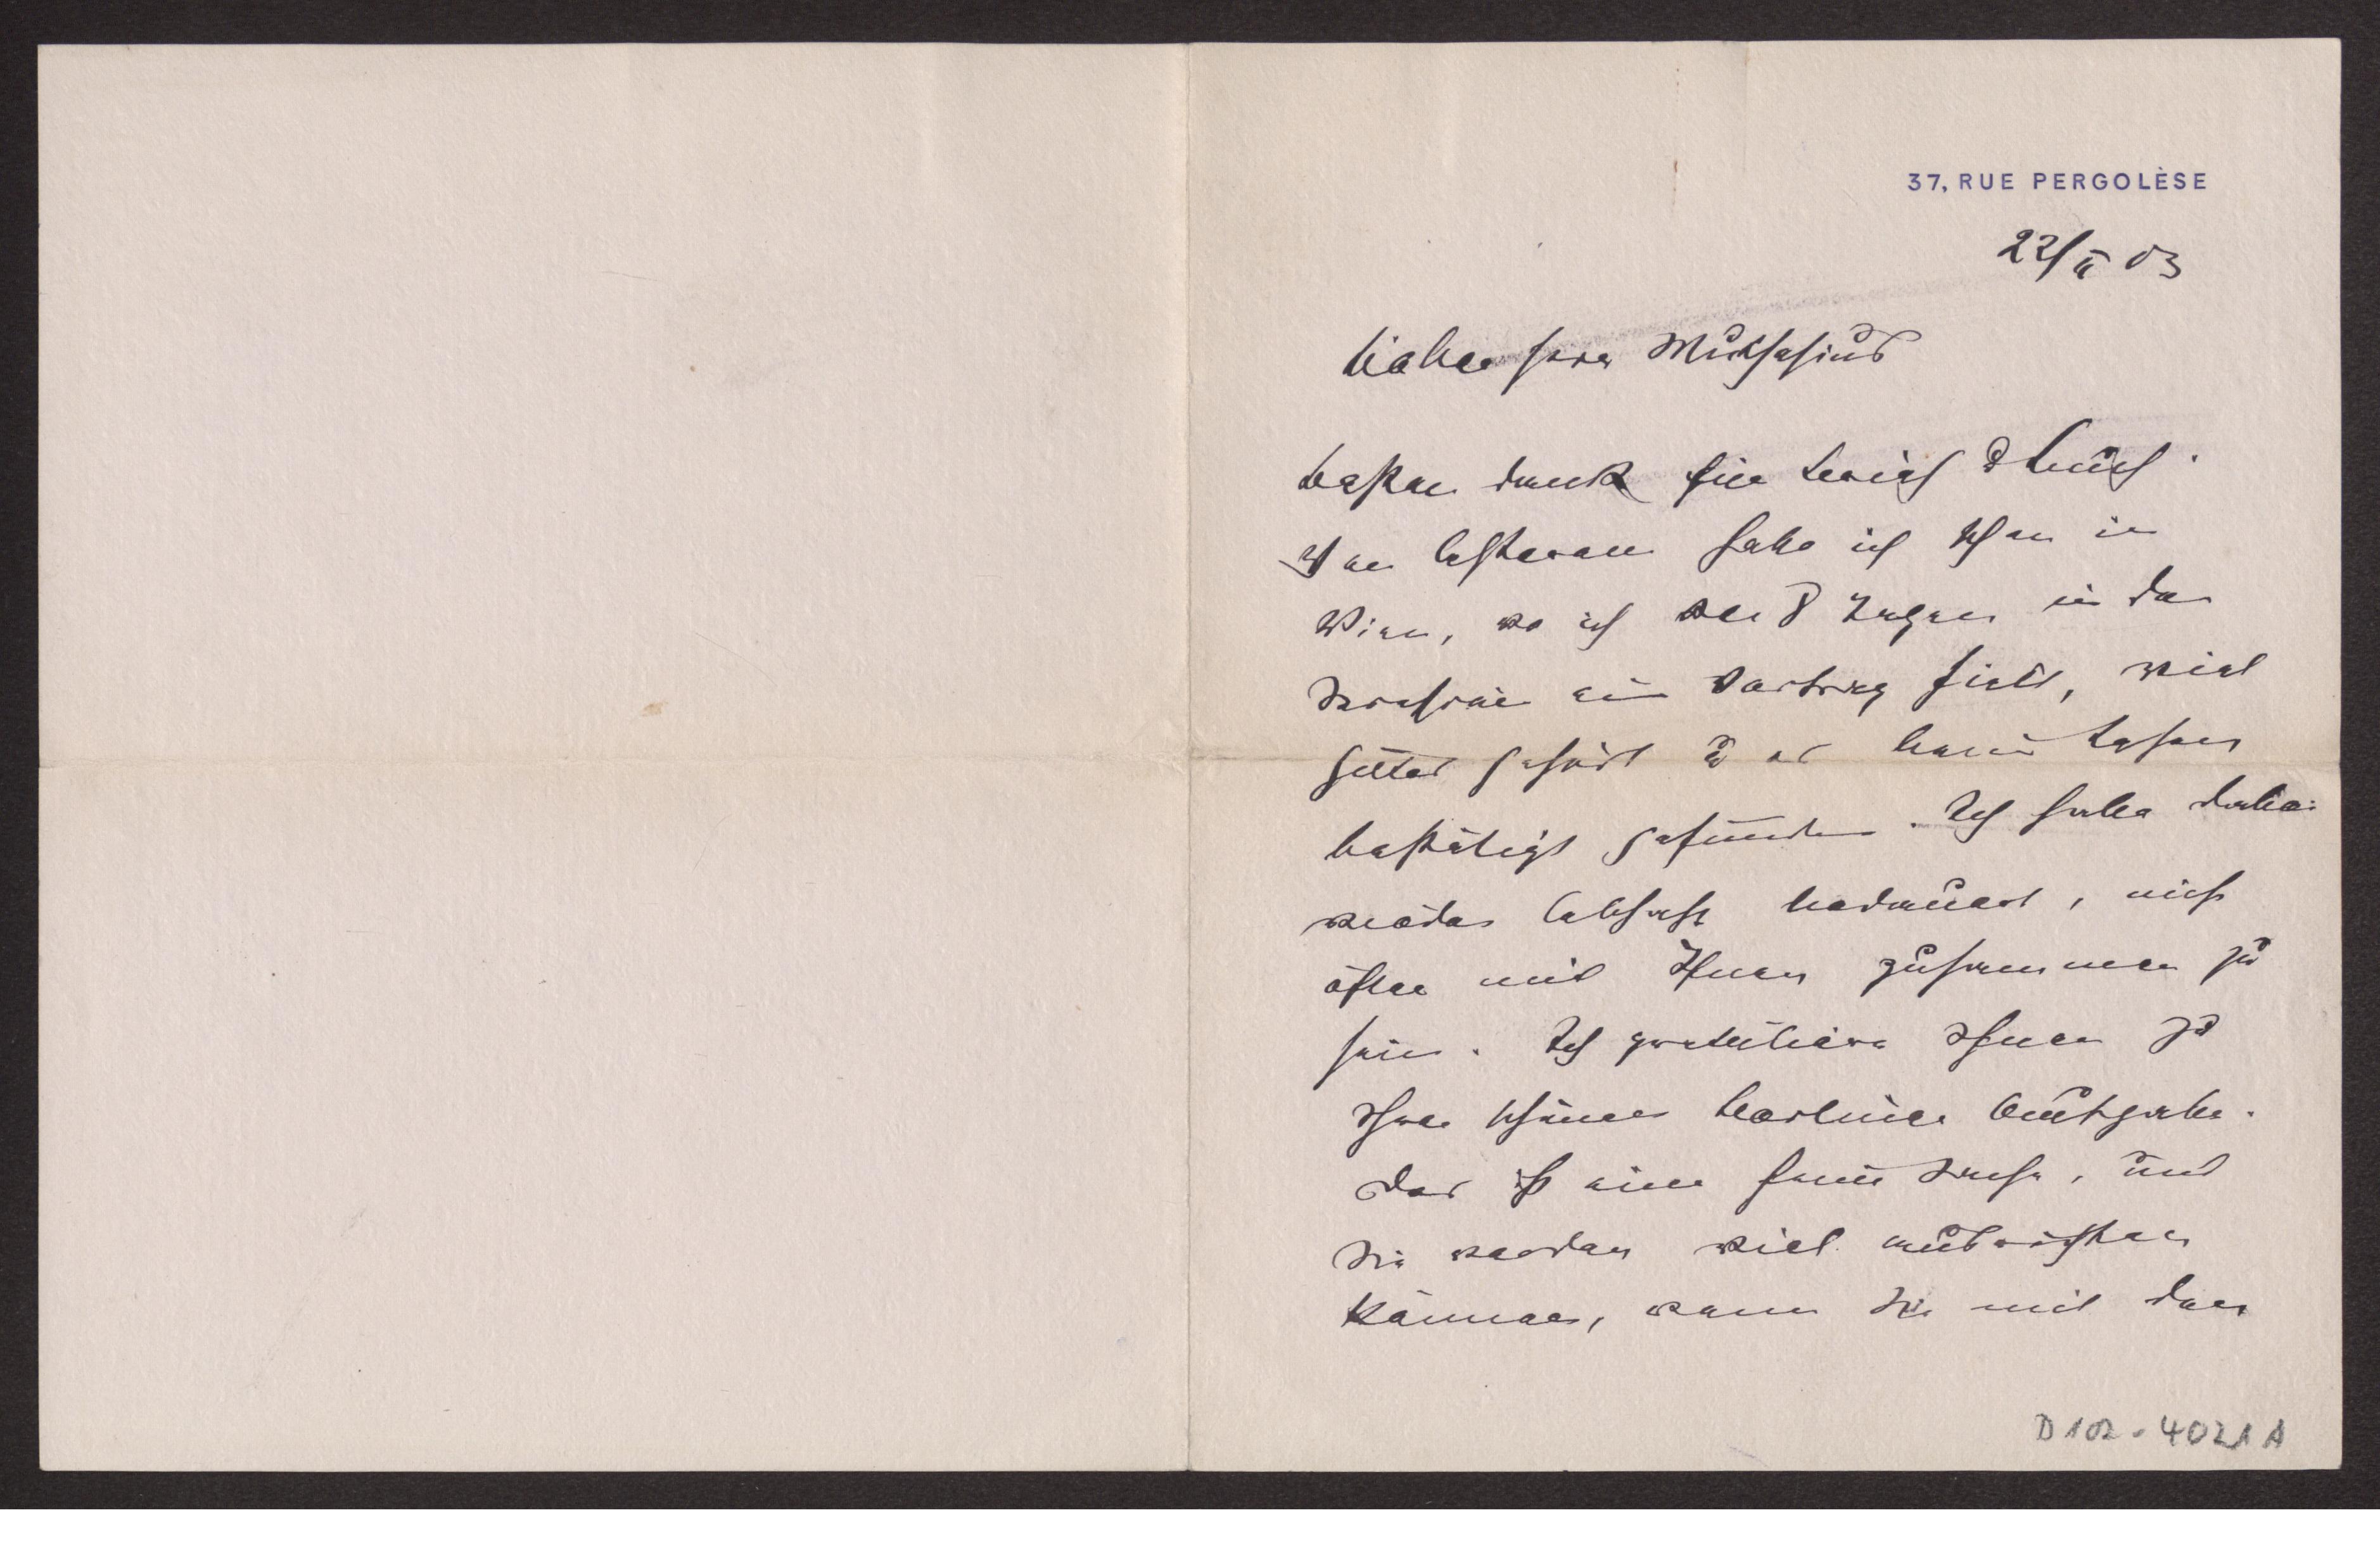 37, RUE PERGOLÈSE
22/II 03
Lieber Herr Muthesius
besten Dank für Brief & Buch.
Von letzterem habe ich schon in
Wien, wo ich vor 8 Tagen in der
Secession ein Vortrag hielt, viel
gutes gehört & es beim Lesen
bestätigt gefunden. Ich habe dabei
wieder lebhaft bedauert, nicht
öfter mit Ihnen zusammen zu
sein. Ich gratuliere Ihnen zu
Ihrer schönen Berliner Aufgabe.
Das ist eine Sache, und
Sie werden viel ausrichten
können, wenn Sie mit dem
D 102-4021 A